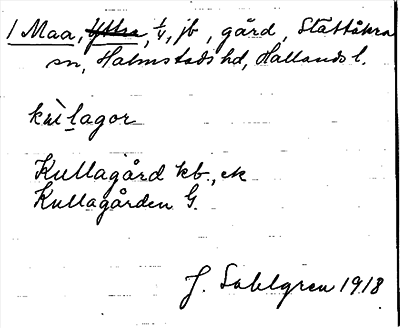 1 Maa, Yttra, 1/4, jb, gård, Slättåkra
sn, Halmstads hd, Hallands l.
kùlagor
Kullagård kb., ek
Kullagården G.
J. Sahlgren 1918